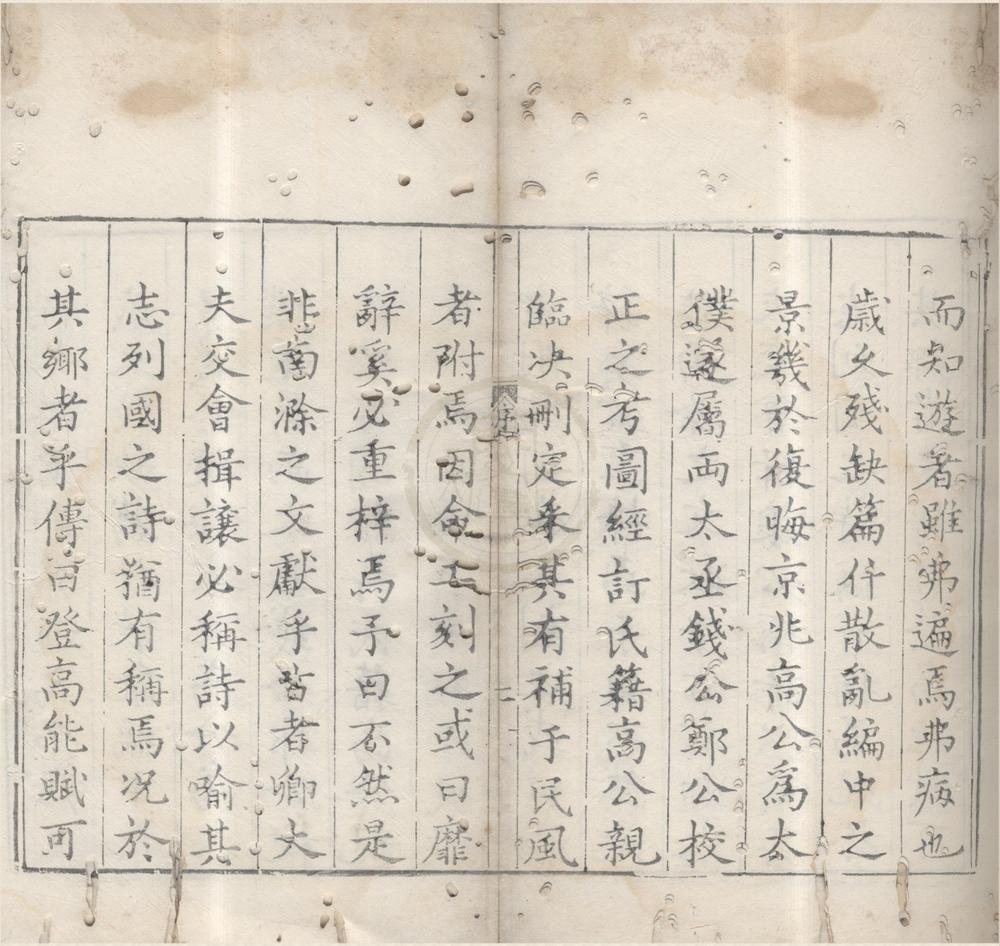 而知遊者雖弗遍焉弗病也
歳久殘缺篇什散亂編中之
景幾於復晦京兆高公爲太
僕遂屬両太丞錢公鄭公校
正之考圖經訂氏籍高公親
臨决刪定采其有補于民風
序
二
者附焉因命工刻之或曰靡
辭奚必重梓焉予曰不然是
非啇滁之文獻乎昔者卿大
夫交會揖讓必稱詩以喻其
志列國之詩猶有稱焉况於
其鄉者乎傳曰登高能賦可